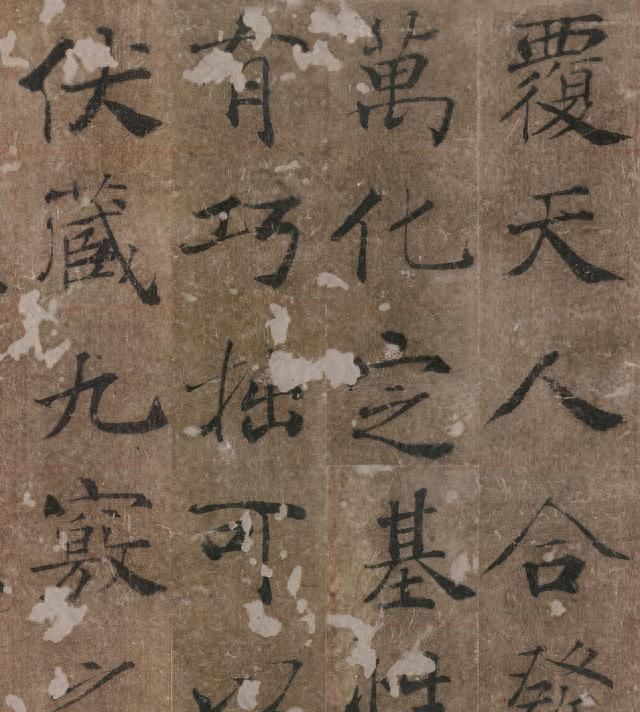 覆天人合發
萬化定基性
有巧拙可以
伏藏九竅之